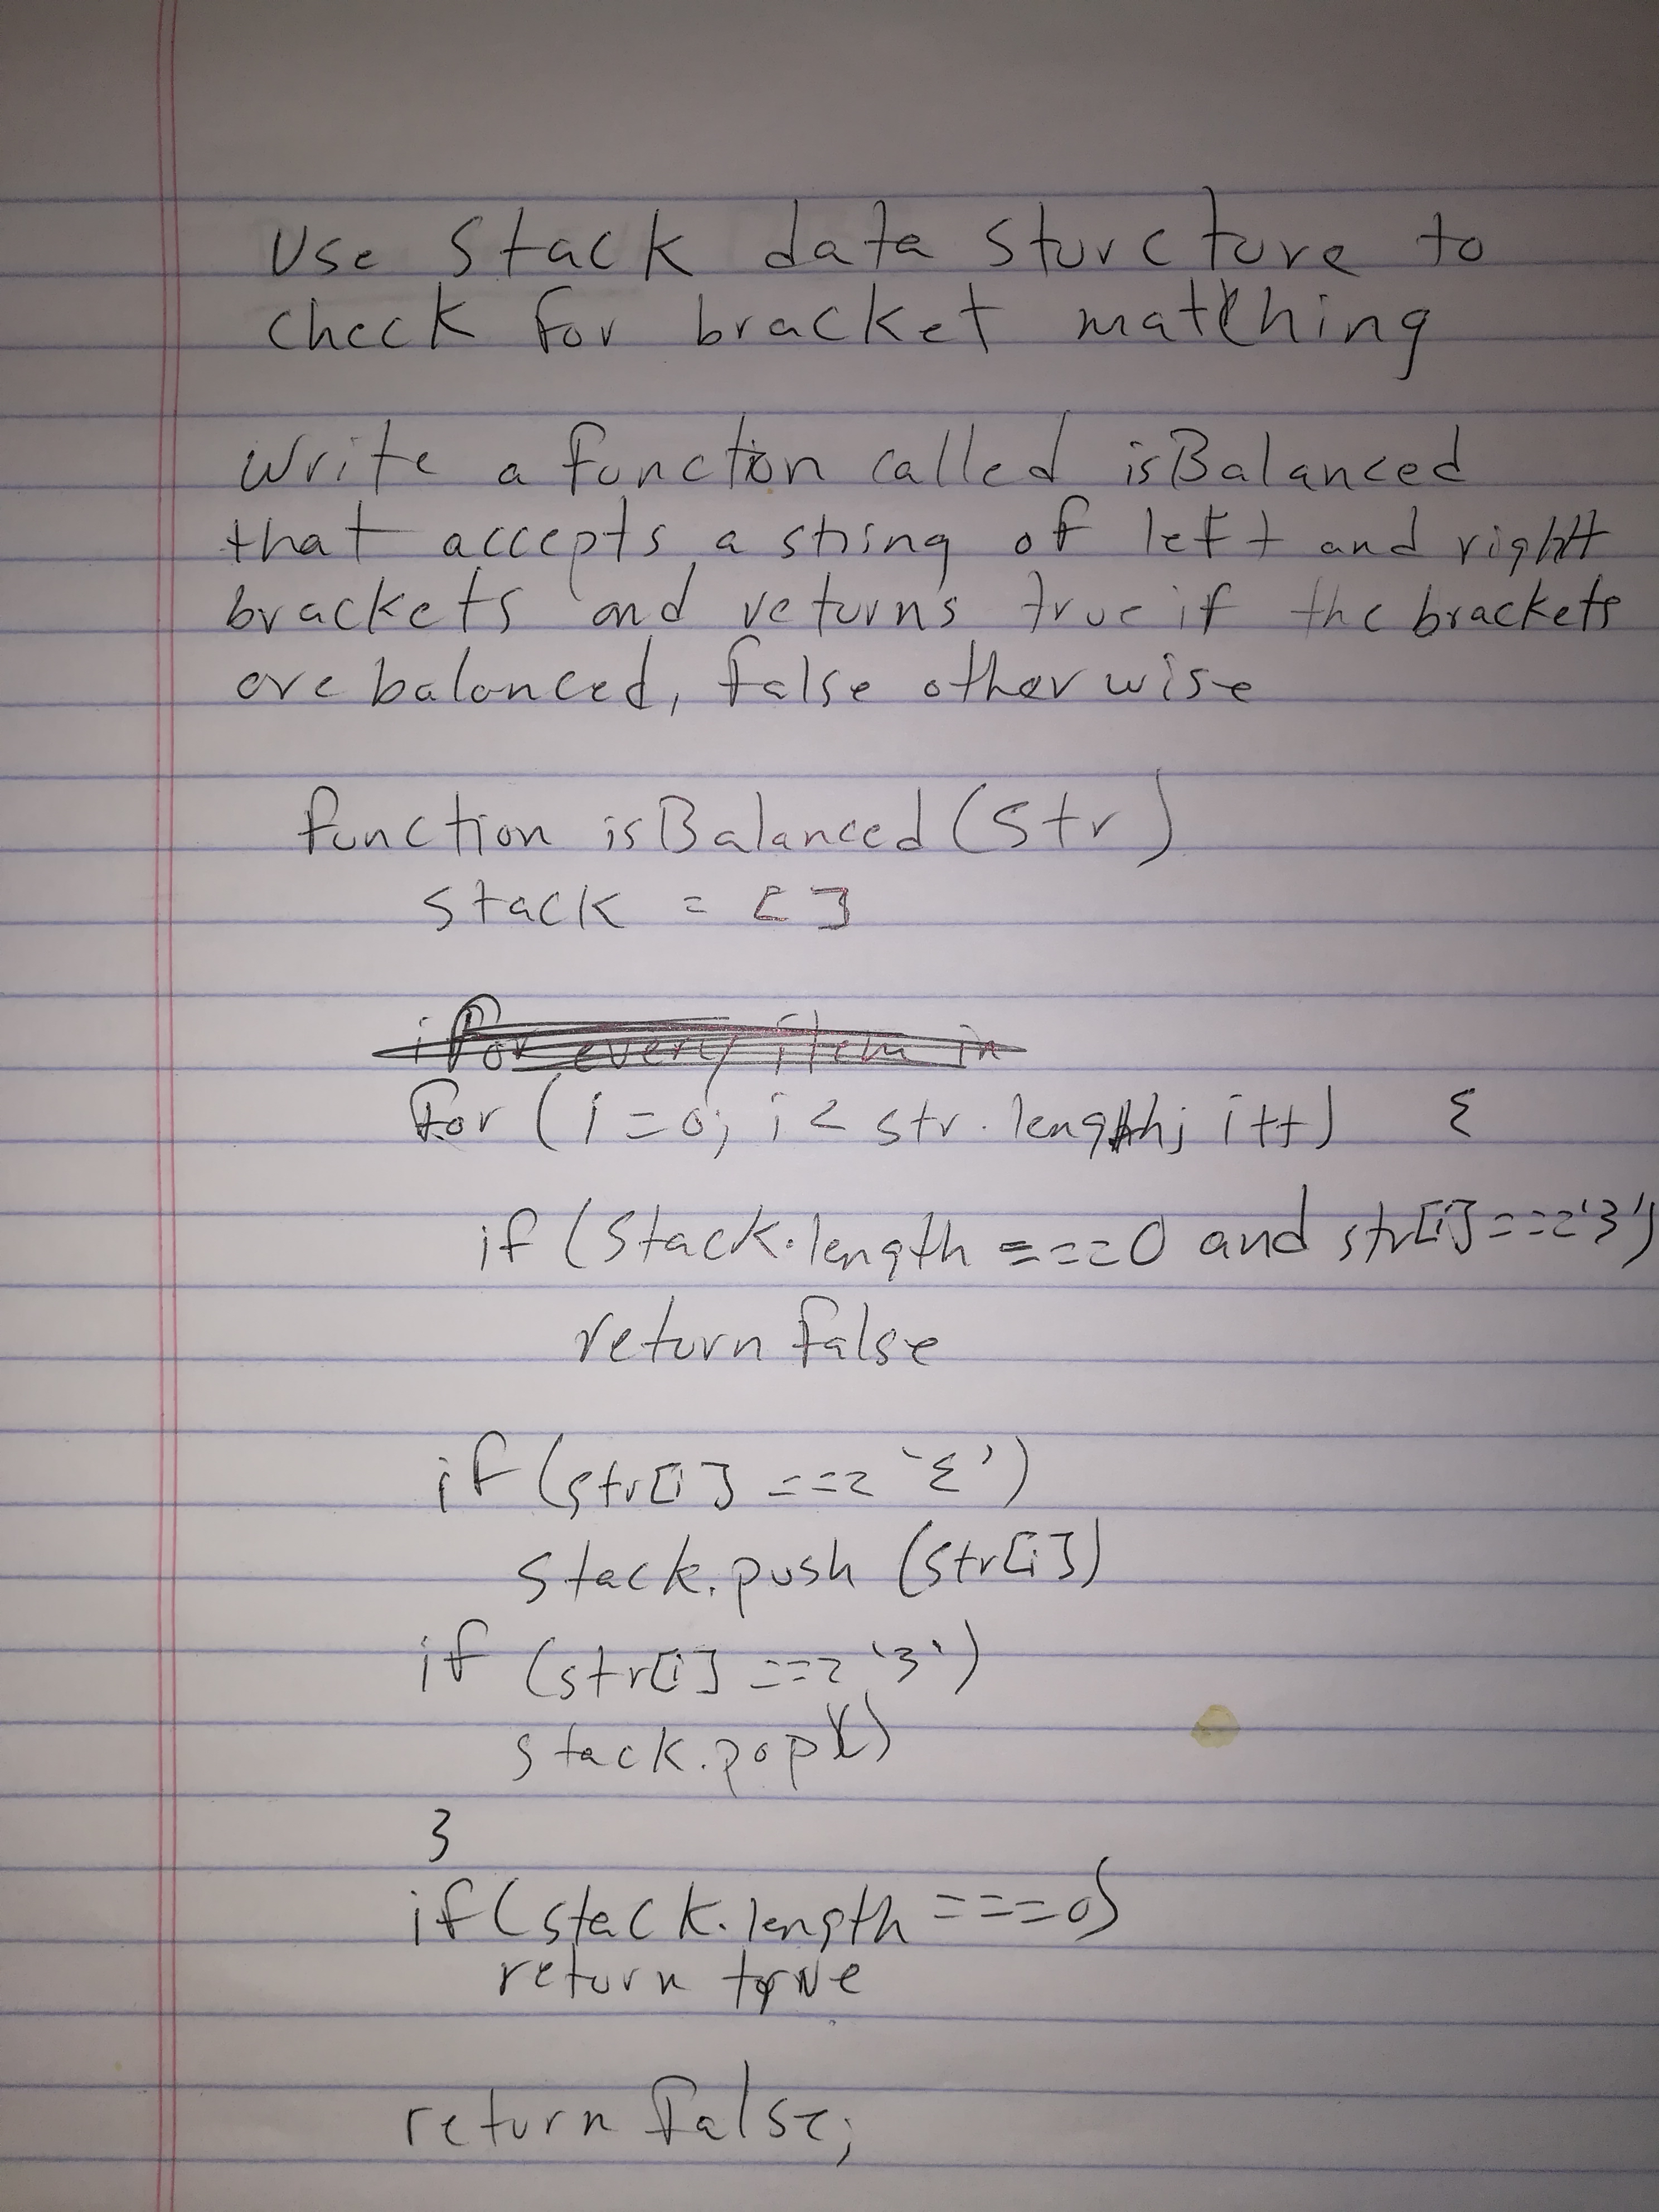 Use Stack data sturcture to
check for bracket matching
Write a function called isBalanced
that accepts a string of left and right
brackets and returns true if the brackets
are balanced, false otherwise
function isBalanced(str)
stack = []
for every item in
for (i=0; i < str.length; i++) {
if (stack.length === 0 and str[i] === '}')
return false
if (str[i] === '{')
stack.push (str[i])
if (str[i] === '}')
stack.pop()
}
if (stack.length === 0)
return true
return false;